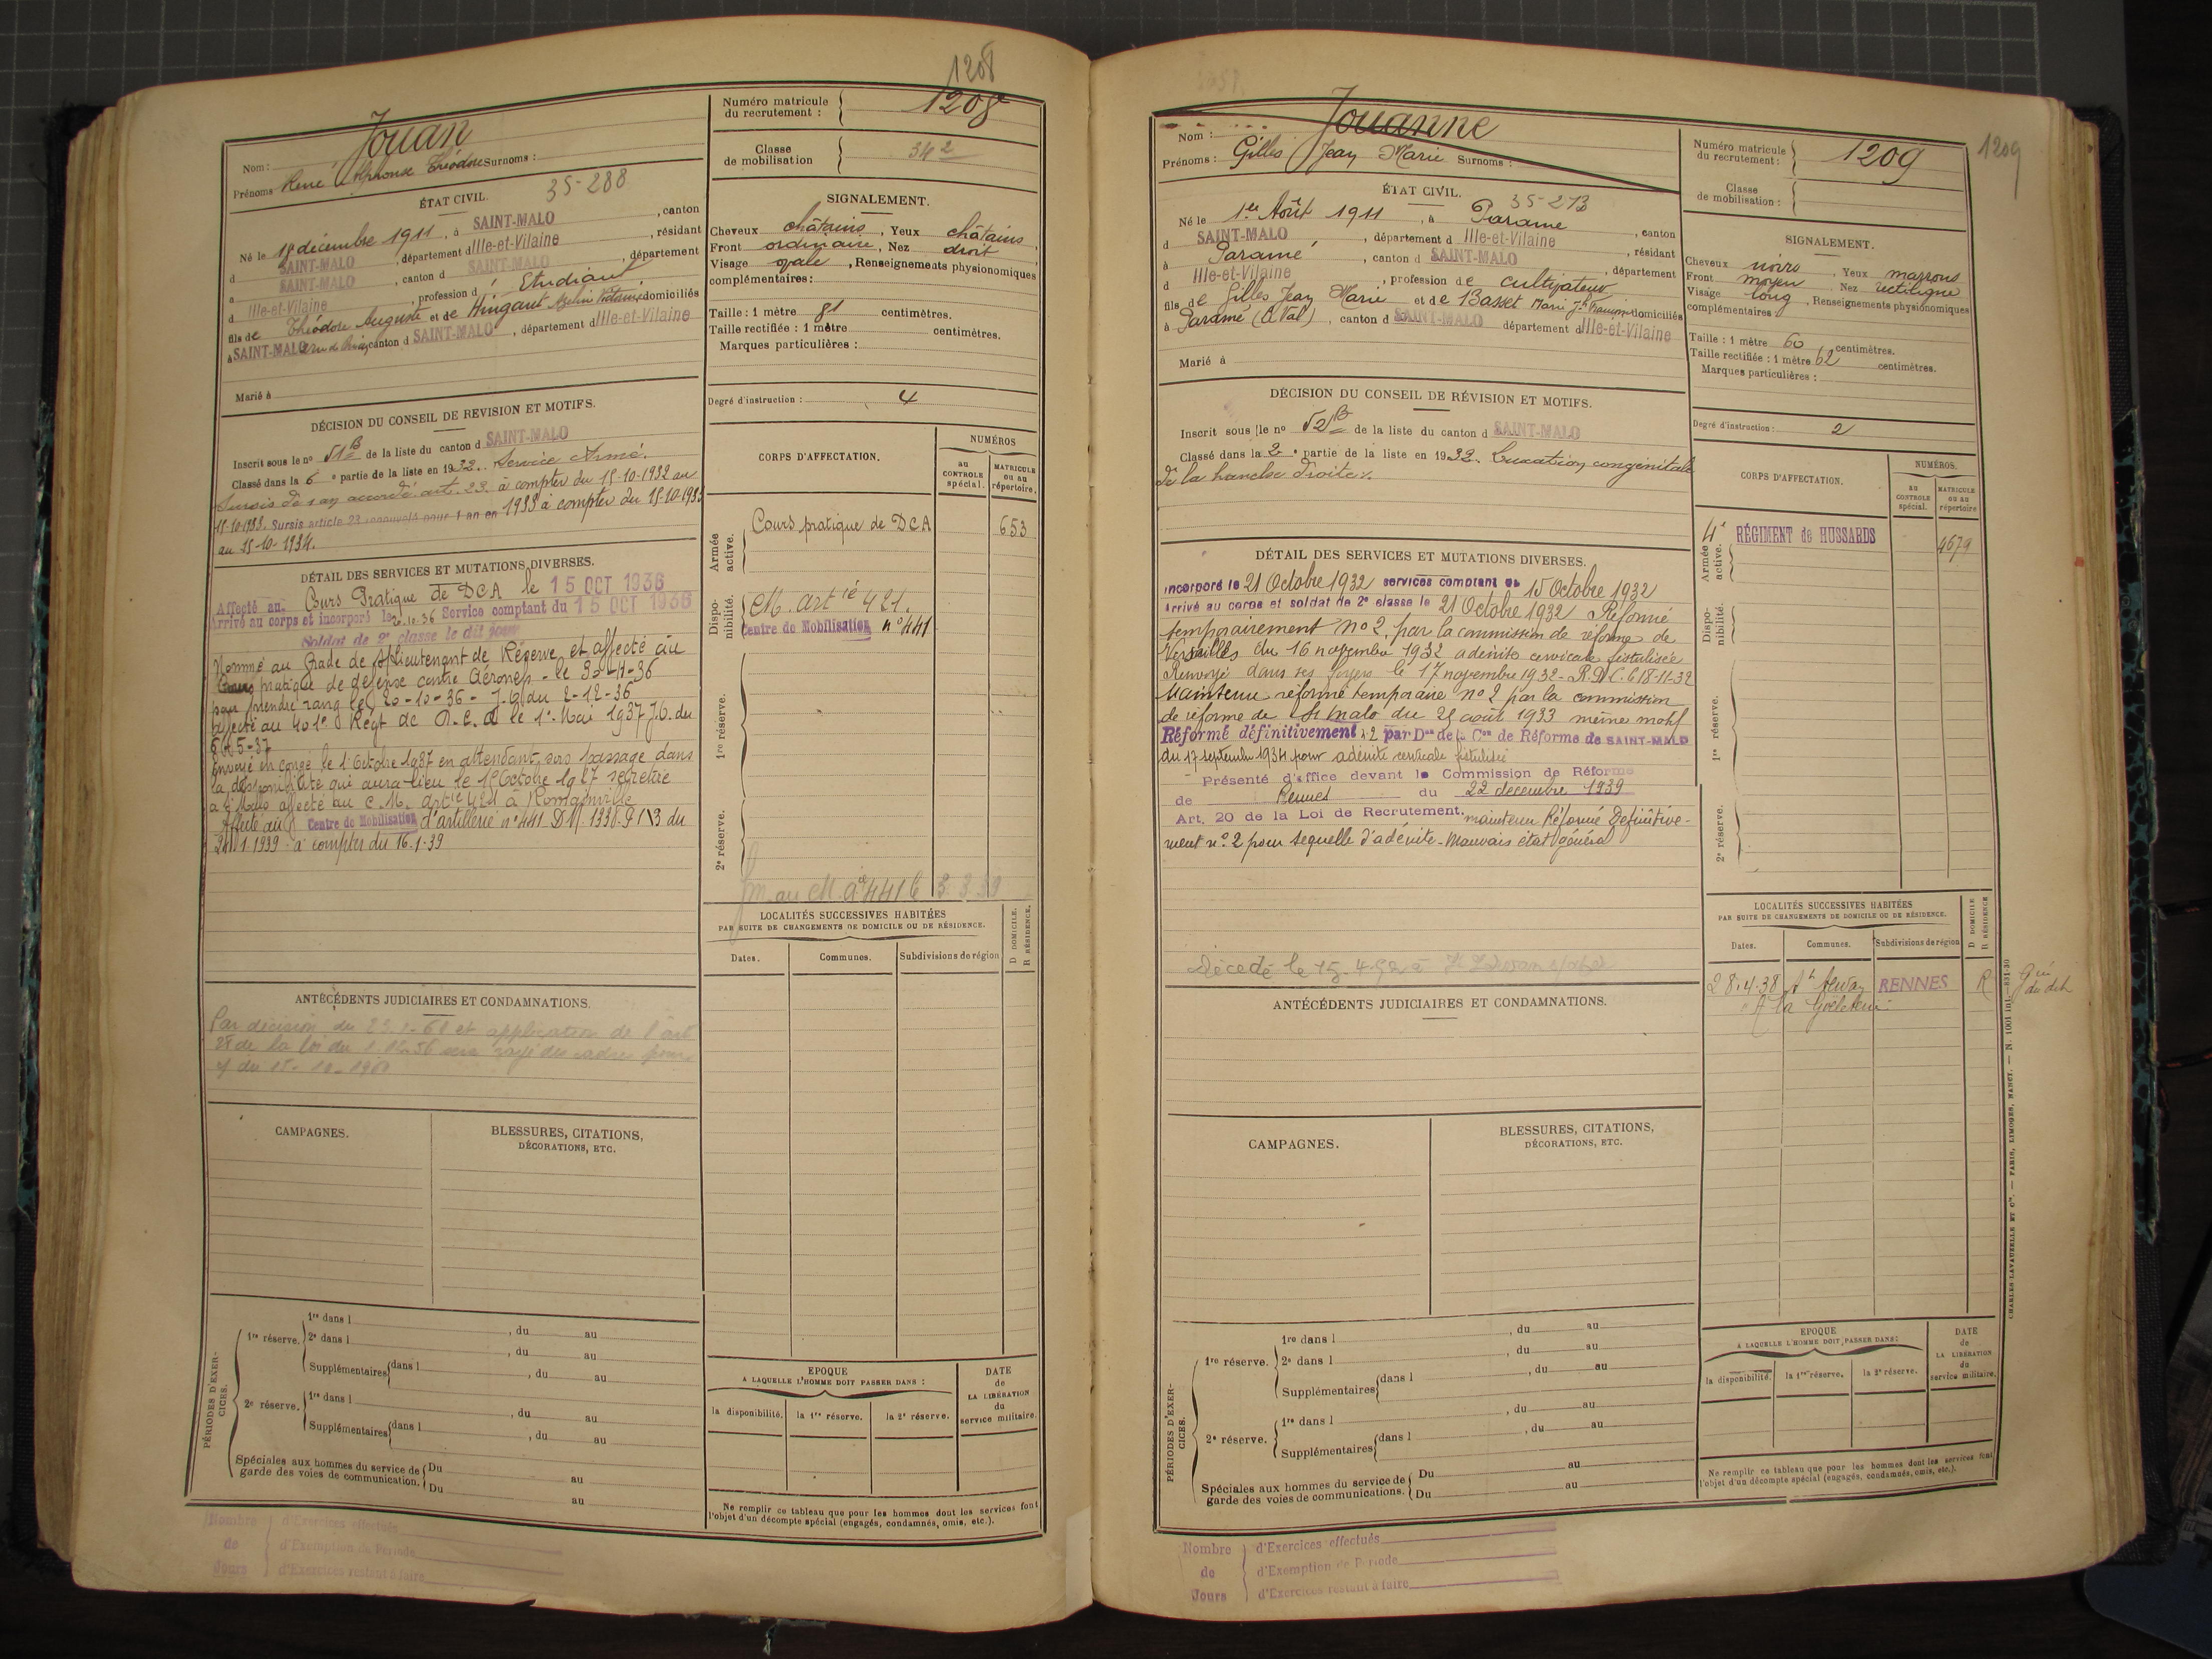 1208
Nom : Jouan
Prénoms René Alphonse Théodore Surnoms :
Numéro matricule
du recrutement : 1208
Classe
de mobilisation 34 2
ÉTAT CIVIL. 35-288
Né le 15 décembre 1911, à SAINT-MALO, canton
d SAINT-MALO, département d Ille-et-Vilaine, résidant
à SAINT-MALO, canton d SAINT-MALO, département
d Ille-et-Vilaine, profession d' Etudiant
fils de Théodore Auguste et de Hingant Victoire domiciliés
à SAINT-MALO canton d SAINT-MALO, département d Ille-et-Vilaine
Marié à
SIGNALEMENT.
Cheveux châtains, Yeux châtains,
Front ordinaire, Nez droit,
Visage ovale, Renseignements physionomiques
complémentaires :
Taille : 1 mètre 81 centimètres.
Taille rectifiée : 1 mètre centimètres.
Marques particulières :
Degré d'instruction : 4
DÉCISION DU CONSEIL DE REVISION ET MOTIFS.
Inscrit sous le no 51 B de la liste du canton d SAINT-MALO
Classé dans la 6 e partie de la liste en 1932. Service Armé.
Sursis de 1 an accordé art. 23. à compter du 15-10-1932 au
15-10-1933. Sursis article 23 renouvelé pour 1 an en 1933 à compter du 15-10-1933
au 15-10-1934.
DÉTAIL DES SERVICES ET MUTATIONS DIVERSES.
Affecté au Cours Pratique de DCA le 15 OCT 1936
Arrivé au corps et incorporé le 20.10.36 Service comptant du 15 OCT 1936
Soldat de 2e classe le dit jour
Nommé au Grade de S/lieutenant de Réserve et affecté au
Cours pratique de défense contre Aéronefs - le 30-11-36
pour prendre rang le 20-10-36 - J.O. du 2-12-36
affecté au 401e Régt de D.C.A le 1er Mai 1937 J.O. du
5-37
Envoyé en congé le 1er Octobre 1937 en attendant son passage dans
la disponibilité qui aura lieu le 15 Octobre 1937 se retire
à St Malo affecté au C.M. artie 421 à Romainville
Affecté au Centre de Mobilisation d'artillerie n° 441 DM 1336.9 1/3 du
24.1.1939 à compter du 16.1.39
CORPS D'AFFECTATION.
NUMÉROS
au
CONTROLE
spécial.
MATRICULE
ou au
répertoire.
Armée
active.
Cours pratique de DCA 653
Dispo-
nibilité.
C.M. artie 421.
Centre de Mobilisation n° 441
1re réserve.
2e réserve.
au C.M. 441 3.3.39
LOCALITÉS SUCCESSIVES HABITÉES
PAR SUITE DE CHANGEMENTS DE DOMICILE OU DE RÉSIDENCE.
D DOMICILE.
R RÉSIDENCE.
Dates. Communes. Subdivisions de région
ANTÉCÉDENTS JUDICIAIRES ET CONDAMNATIONS.
Par décision du et application de l'art
28 de la loi du 1.12.56 sera rayé des cadres
du 15-10-1960
CAMPAGNES.
BLESSURES, CITATIONS,
DÉCORATIONS, ETC.
PÉRIODES D'EXER-
CICES.
1re réserve. 1re dans l , du au
2e dans l , du au
Supplémentaires dans l , du au
2e réserve. 1re dans l , du au
Supplémentaires dans l , du au
Spéciales aux hommes du service de
garde des voies de communication. Du au
Du au
EPOQUE
A LAQUELLE L'HOMME DOIT PASSER DANS :
la disponibilité. la 1re réserve. la 2e réserve.
DATE
de
LA LIBÉRATION
du
service militaire.
Ne remplir ce tableau que pour les hommes dont les services font
l'objet d'un décompte spécial (engagés, condamnés, omis, etc.).
Nombre
de
Jours
d'Exercices effectués
d'Exemption de Période
d'Exercices restant à faire
1209
Nom : Jouanne
Prénoms : Gilles Jean Marie Surnoms :
Numéro matricule
du recrutement : 1209
Classe
de mobilisation :
ÉTAT CIVIL. 35-273
Né le 1er Août 1911, à Paramé, canton
d SAINT-MALO, département d Ille-et-Vilaine
à Paramé, canton d SAINT-MALO, résidant
d Ille-et-Vilaine, profession de cultivateur, département
fils de Gilles Jean Marie et de Basset Marie Jh domiciliés
à Paramé, canton d SAINT-MALO département d Ille-et-Vilaine
Marié à
SIGNALEMENT.
Cheveux noirs, Yeux marrons
Front moyen, Nez rectiligne
Visage long, Renseignements physionomiques
complémentaires :
Taille : 1 mètre 60 centimètres.
Taille rectifiée : 1 mètre 62 centimètres.
Marques particulières :
Degré d'instruction : 2
DÉCISION DU CONSEIL DE RÉVISION ET MOTIFS.
Inscrit sous le no 52 B de la liste du canton d SAINT-MALO
Classé dans la 2 e partie de la liste en 1932. Luxation congénitale
de la hanche droite.
DÉTAIL DES SERVICES ET MUTATIONS DIVERSES.
Incorporé le 21 Octobre 1932 services comptant du 15 Octobre 1932
Arrivé au corps et soldat de 2e classe le 21 Octobre 1932 Réformé
temporairement n°2, par la commission de réforme de
Versailles du 16 novembre 1932 adénite cervicale fistulisée
Renvoyé dans ses foyers le 17 novembre 1932 - R.D.C. le 18-11-32
Maintenu réformé temporaire n° 2 par la commission
de réforme de St Malo du 25 août 1933 même motif
Réformé définitivement n° 2 par Don de la Con de Réforme de SAINT-MALO
du 17 septembre 1934 pour adénite cervicale fistulisée
Présenté d'office devant la Commission de Réforme
de Rennes du 22 décembre 1939
Art. 20 de la Loi de Recrutement. maintenu Réformé Définitive-
ment n° 2 pour séquelle d'adénite - Mauvais état général
Décédé le 15.4.52 à
CORPS D'AFFECTATION.
NUMÉROS.
au
CONTROLE
spécial.
MATRICULE
ou au
répertoire
Armée
active.
4e RÉGIMENT de HUSSARDS 4679
Dispo-
nibilité.
1re réserve.
2e réserve.
LOCALITÉS SUCCESSIVES HABITÉES
PAR SUITE DE CHANGEMENTS DE DOMICILE OU DE RÉSIDENCE.
D DOMICILE
R RÉSIDENCE
Dates. Communes. Subdivisions de région
28.4.38 St Servan RENNES R
ANTÉCÉDENTS JUDICIAIRES ET CONDAMNATIONS.
CAMPAGNES.
BLESSURES, CITATIONS,
DÉCORATIONS, ETC.
PÉRIODES D'EXER-
CICES.
1re réserve. 1re dans l , du au
2e dans l , du au
Supplémentaires dans l , du au
2e réserve. 1re dans l , du au
Supplémentaires dans l , du au
Spéciales aux hommes du service de
garde des voies de communications. Du au
Du au
EPOQUE
A LAQUELLE L'HOMME DOIT PASSER DANS :
la disponibilité. la 1re réserve. la 2e réserve.
DATE
de
LA LIBÉRATION
du
service militaire.
Ne remplir ce tableau que pour les hommes dont les services font
l'objet d'un décompte spécial (engagés, condamnés, omis, etc.).
CHARLES-LAVAUZELLE ET Cie. — PARIS, LIMOGES, NANCY. — N. 1001 881-30
Nombre
de
Jours
d'Exercices effectués
d'Exemption de Période
d'Exercices restant à faire